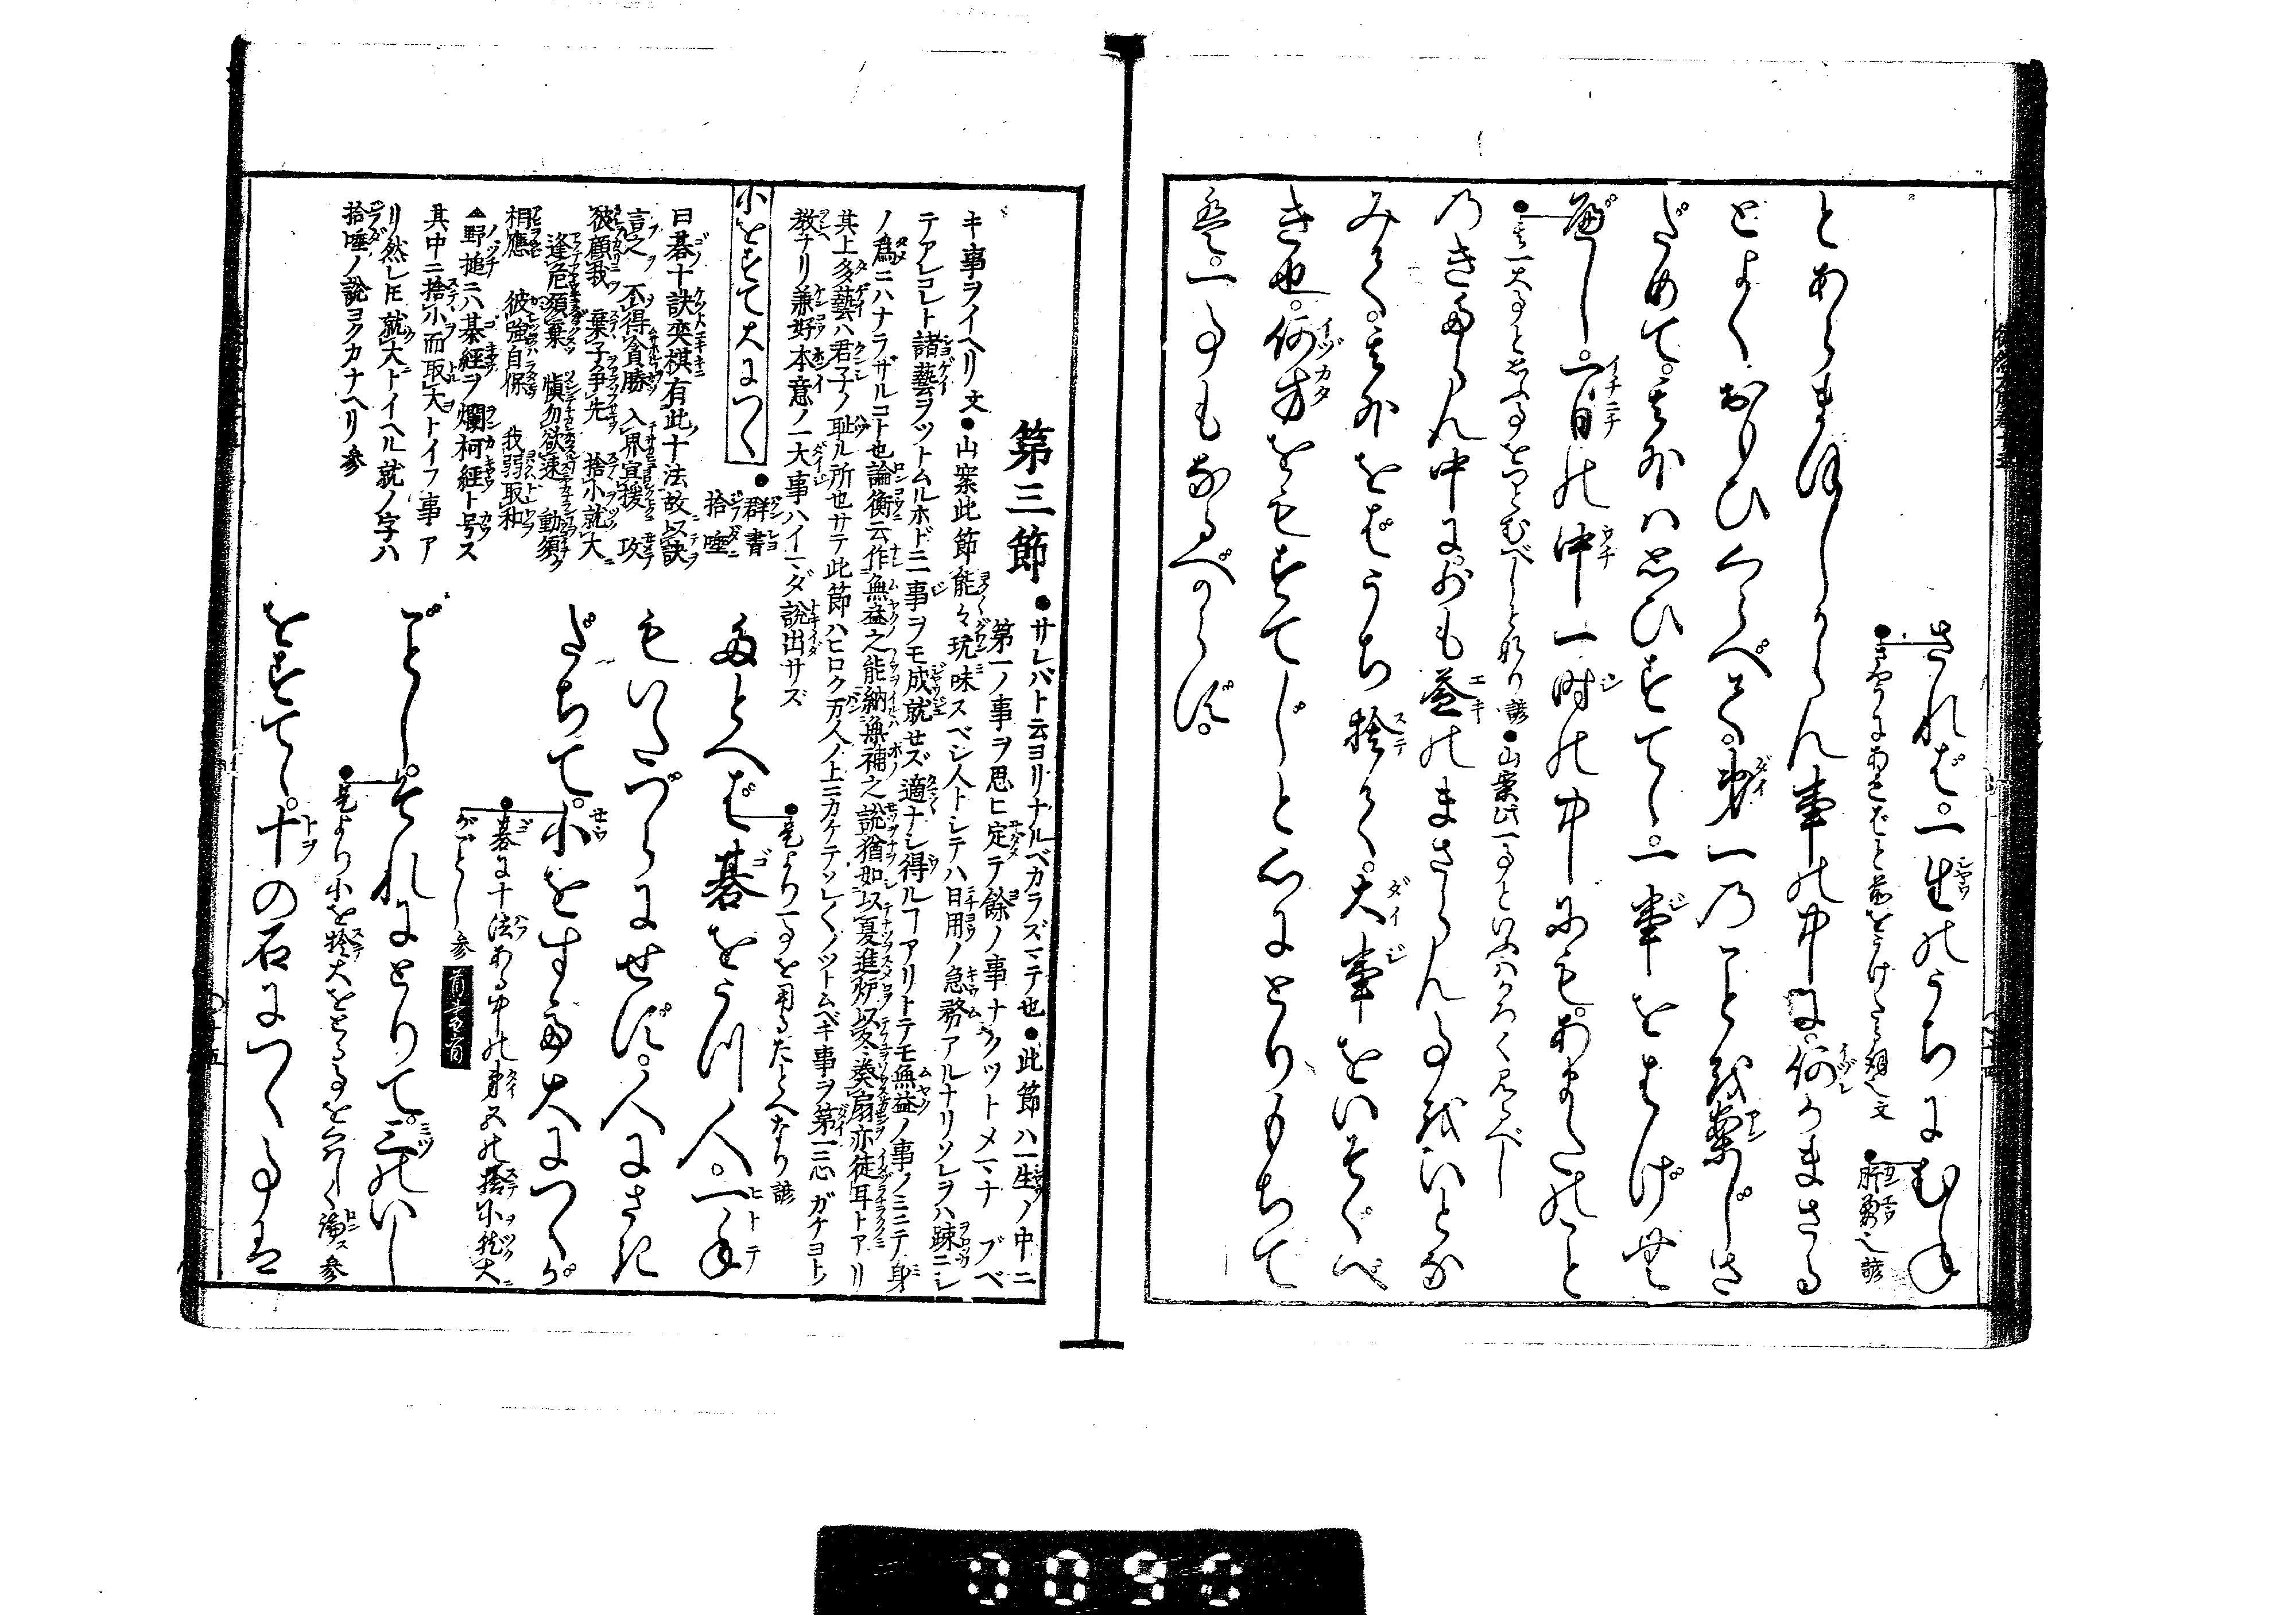 されば。一生のうちにむね
とあらまほしからん事の中に。何かまさる
とよくおもひくらべて。第一のことを案じさ
だめて。其外は思ひすてゝ。一事をはげむ
べし。一日の中一時の中にも。あまたのこと
のきたらん中に。少も益のまさらん事をいとな
みて。其外をばうち捨て。大事をいそぐべ
き也。何方をもすてじと心にとりもちて
は。一事もなるべからず。
第三節
●サレバト云ヨリナルベカラズマテ也●此節ハ一生ノ中ニ
第一ノ事ヲ思ヒ定テ餘ノ事ナクツトメ
キ事ヲイヘリ文●山案此節能々玩味スベシ人トシテハ日用ノ急務アルナリソレヲハ疎ニシ
テアレコレト諸藝ヲツトムルホドニ一事ヲモ成就セズ適ナシ得ルコアリトテモ無益ノ事ノミニテ身
ノ爲ニハナラサルコト也論衡云作無益之能納無補之說猶如以夏進炉以冬奏扇亦徒耳トアリ
其上多藝ハ君子ノ耻ル所也サテ此節ハヒロク万人ノ上ニカケテソレ〳〵ノツトムベキ事ヲ第一ニ心ガケヨトノ
教ナリ兼好本意ノ一大事ハイマダ說出サズ
たとへば碁をうつ人。一手
もいたづらにせず。人にさき
だちて。小をすて大につくが
ごとし。それにとりて。三のいし
をすてゝ。十の石につく事は
●是より一事を用るたとへなり諺
●碁に十法ある中の第五の捨小就大
がごとし参
●是より小を捨大をとる事をくはしく演ス参
小をすて大につく
●群書拾唾
曰碁十訣奕棋有此十法故以訣
言之 不得貪勝 入界宜援 攻
彼顧我 棄子爭先 捨小就大
逢危須棄 愼勿欲速 動須
相應 彼強自保 我弱取和
▲野槌ニハ棊經ヲ爛柯經ト号ス
其中ニ捨小而取大トイフ事ア
リ然レ𪜈就大トイヘル就ノ字ハ
拾唾ノ說ヨクカナヘリ参